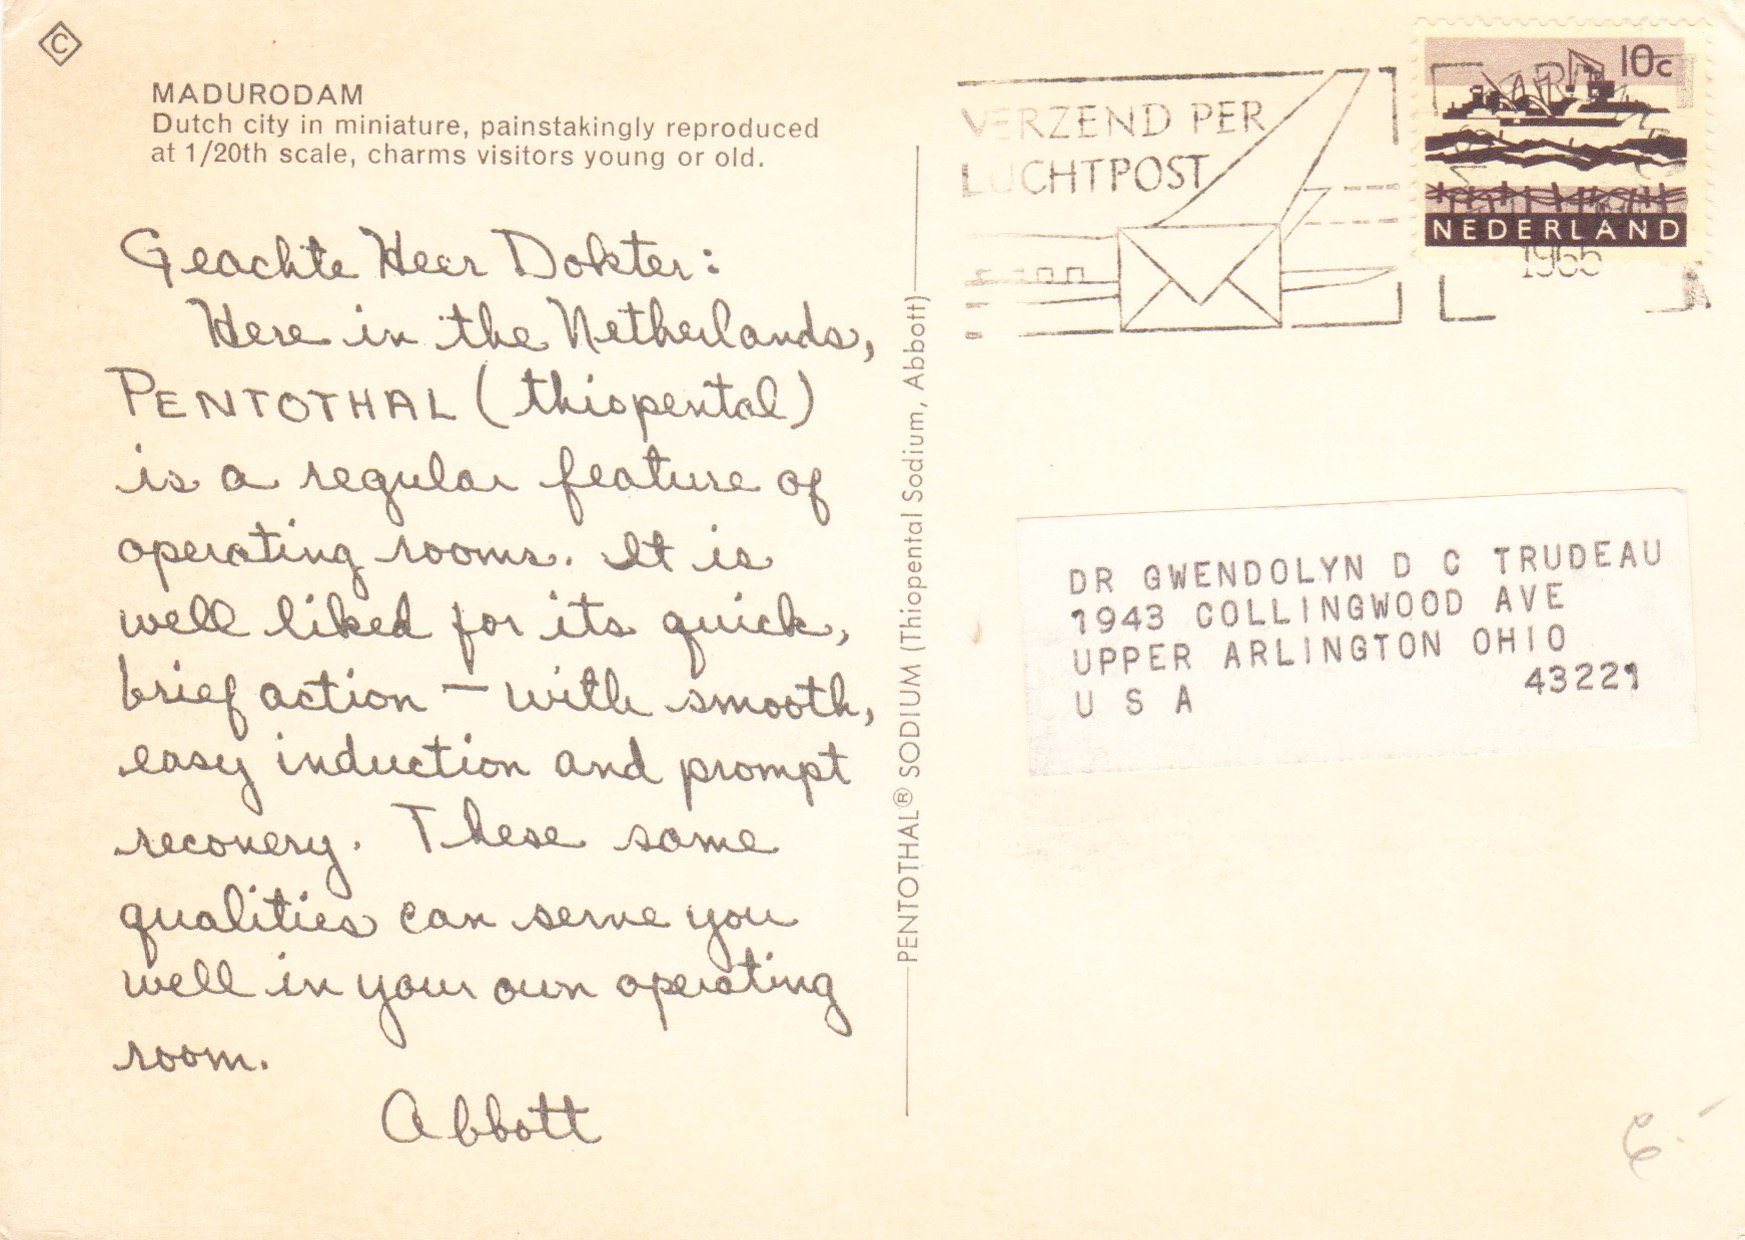 C
MADURODAM
Dutch city in miniature, painstakingly reproduced
at 1/20th scale, charms visitors young or old.
Geachte Heer Dokter:
Here in the Netherlands,
PENTOTHAL (thiopental)
is a regular feature of
operating rooms. It is
well liked for its quick,
brief action — with smooth,
easy induction and prompt
recovery. These same
qualities can serve you
well in your own operating
room.
Abbott
PENTOTHAL® SODIUM (Thiopental Sodium, Abbott)
VERZEND PER
LUCHTPOST
10c
NEDERLAND
1965
DR GWENDOLYN D C TRUDEAU
1943 COLLINGWOOD AVE
UPPER ARLINGTON OHIO
43221
U S A
6.-